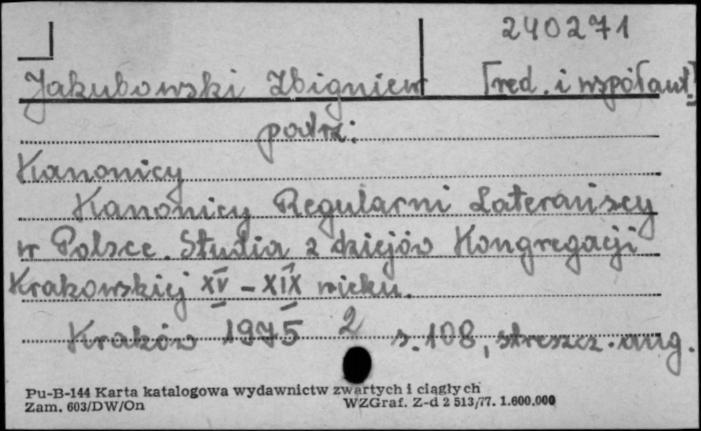 240271
Jakubowski Zbigniew [red. i współaut.]
patrz:
Kanonicy
Kanonicy Regularni Laterańscy
w Polsce. Studia z dziejów Kongregacji
Krakowskiej XV - XIX wieku.
Kraków 1975 2 s. 108, streszcz. ang.
Pu-B-144 Karta katalogowa wydawnictw zwartych i ciągłych
Zam. 603/DW/On WZGraf. Z-d 2 513/77. 1.600.000